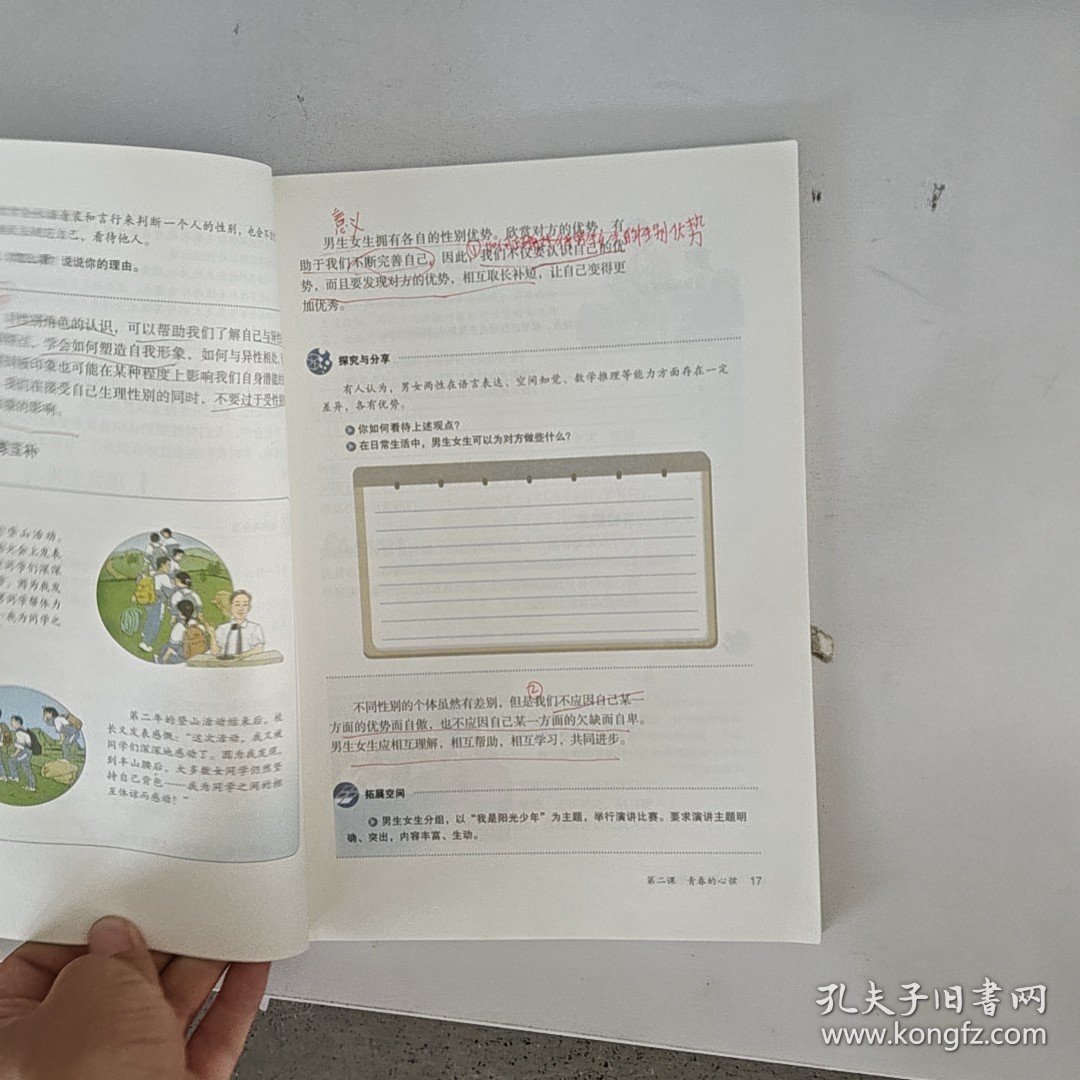 和言行来判断一个人的性别,也会
己、看待他人。
说说你的理由。
角色的认识,可以帮助我们了解自己与异性
学会如何塑造自我形象、如何与异性相处
印象也可能在某种程度上影响我们自身潜能
我们在接受自己生理性别的同时,不要过于受性别
的影响。
登山活动。
会上发表
同学们深深
因为我发
同学帮体力
我为同学之
第二年的登山活动结束后,班
长又发表感慨:“这次活动,我又被
同学们深深地感动了。因为我发现,
到半山腰后,大多数女同学仍然坚
持自己背包……我为同学之间的相
互体谅而感动!”
意义
男生女生拥有各自的性别优势。欣赏对方的优势,有
①如何正确对待男生女生的性别优势
助于我们不断完善自己。因此,我们不仅要认识自己的优
势,而且要发现对方的优势,相互取长补短,让自己变得更
加优秀。
探究与分享
有人认为,男女两性在语言表达、空间知觉、数学推理等能力方面存在一定
差异,各有优势。
你如何看待上述观点?
在日常生活中,男生女生可以为对方做些什么?
②
不同性别的个体虽然有差别,但是我们不应因自己某一
方面的优势而自傲,也不应因自己某一方面的欠缺而自卑。
男生女生应相互理解,相互帮助,相互学习,共同进步。
拓展空间
男生女生分组,以“我是阳光少年”为主题,举行演讲比赛。要求演讲主题明
确、突出,内容丰富、生动。
第二课 青春的心弦 17
孔夫子旧书网
www.kongfz.com